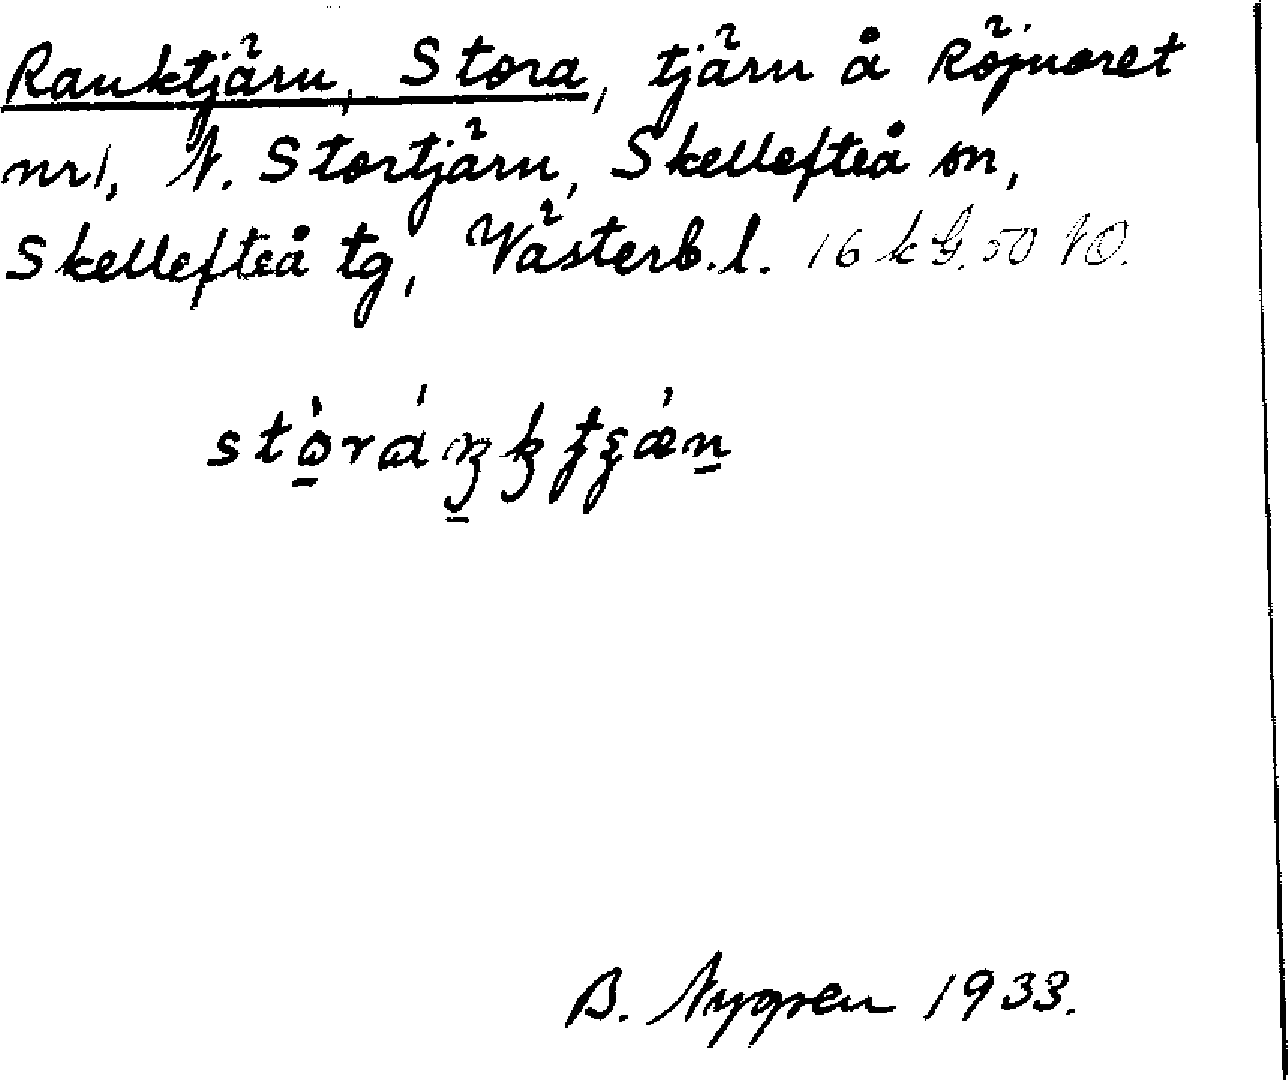 Rauktjärn, Stora, tjärn å Röjnoret
nr 1, N. Stortjärn, Skellefteå sn,
Skellefteå tg, Västerb. l. 16 k G. 50 NO.
B. Nygren 1933.